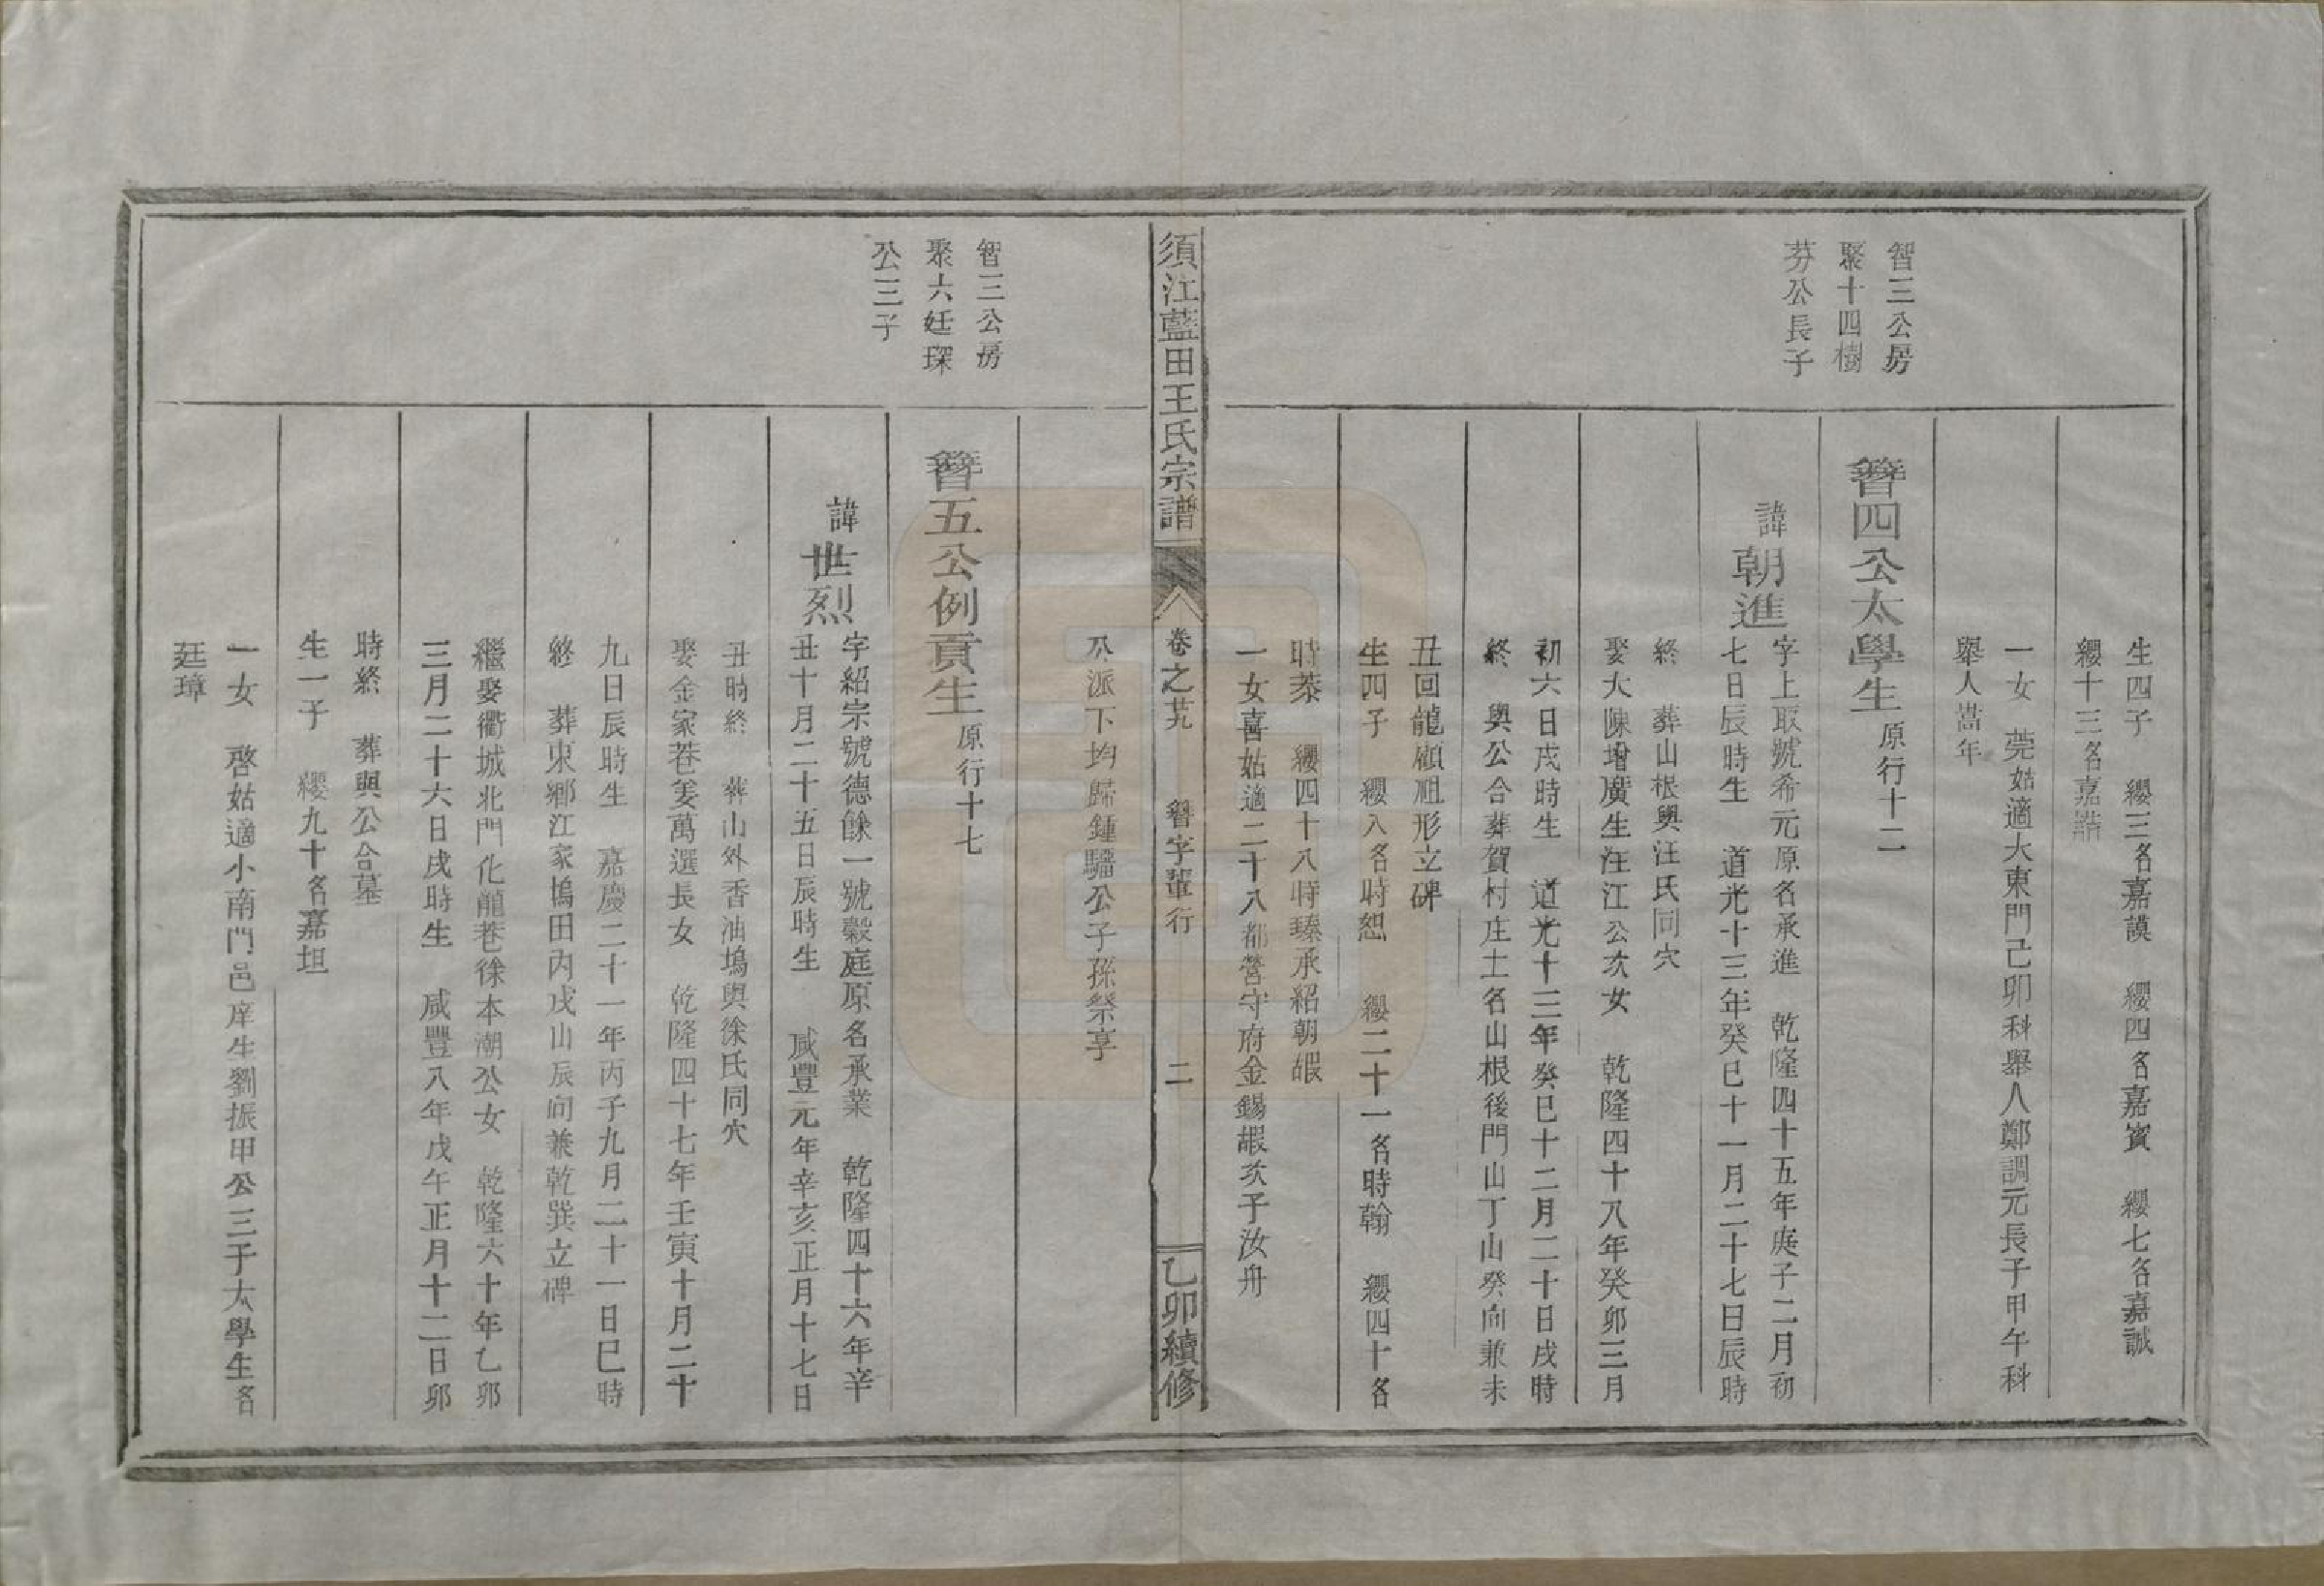 生四子　纓三名嘉謨　纓四名嘉賓　纓七名嘉誠
纓十三名嘉誥
一女　莞姑適大東門己卯科舉人鄭調元長子甲午科
舉人嵩年
智三公房
聚十四樹
芬公長子
簪四公太學生原行十二
諱朝進
字上取號希元原名承進　乾隆四十五年庚子二月初
七日辰時生　道光十三年癸巳十一月二十七日辰時
終　葬山根與汪氏同穴
娶大陳增廣生汪江公次女　乾隆四十八年癸卯三月
初六日戌時生　道光十三年癸巳十二月二十日戌時
終　與公合葬賀村庄土名山根後門山丁山癸向兼未
丑回龍顧祖形立碑
生四子　纓入名時恕　纓二十一名時翰　纓四十名
時菾　纓四十八時臻承紹朝嘏
一女喜姑適二十八都營守府金錫嘏次子汝舟
須江藍田王氏宗譜
卷之艽　簪字輩行　二
乙卯續修
公派下均歸鍾驑公子孫祭享
智三公房
聚六廷琛
公三子
簪五公例貢生原行十七
諱世烈
字紹宗號德馀一號穀庭原名承業　乾隆四十六年辛
丑十月二十五日辰時生　咸豐元年辛亥正月十七日
丑時終　葬山外香油塢與徐氏同穴
娶金家巷姜萬選長女　乾隆四十七年壬寅十月二十
九日辰時生　嘉慶二十一年丙子九月二十一日巳時
終　葬東鄉江家塢田內戌山辰向兼乾巽立碑
繼娶衢城北門化龍巷徐本潮公女　乾隆六十年乙卯
三月二十六日戌時生　咸豐八年戊午正月十二日卯
時終　葬與公合墓
生一子　纓九十名嘉坦
一女　啓姑適小南門邑庠生劉振甲公三子太學生名
廷璋